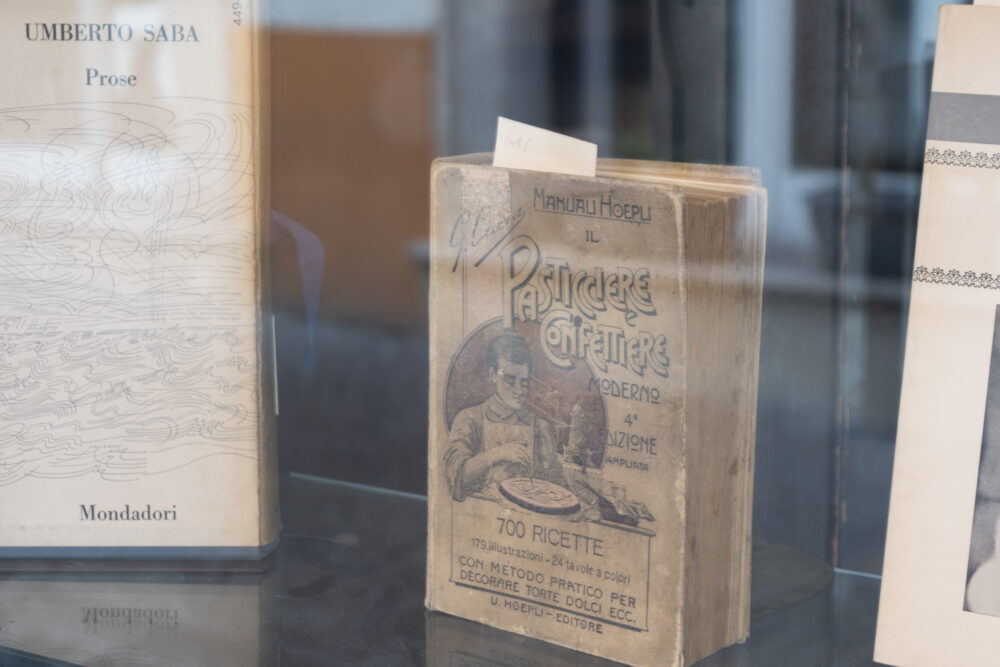 UMBERTO SABA
Prose
Mondadori
Mondadori
449
MANUALI HOEPLI
IL
PASTICCIERE
E
CONFETTIERE
MODERNO
4ª
EDIZIONE
AMPLIATA
700 RICETTE
179 illustrazioni - 24 tavole a colori
CON METODO PRATICO PER
DECORARE TORTE DOLCI ECC.
U. HOEPLI - EDITORE